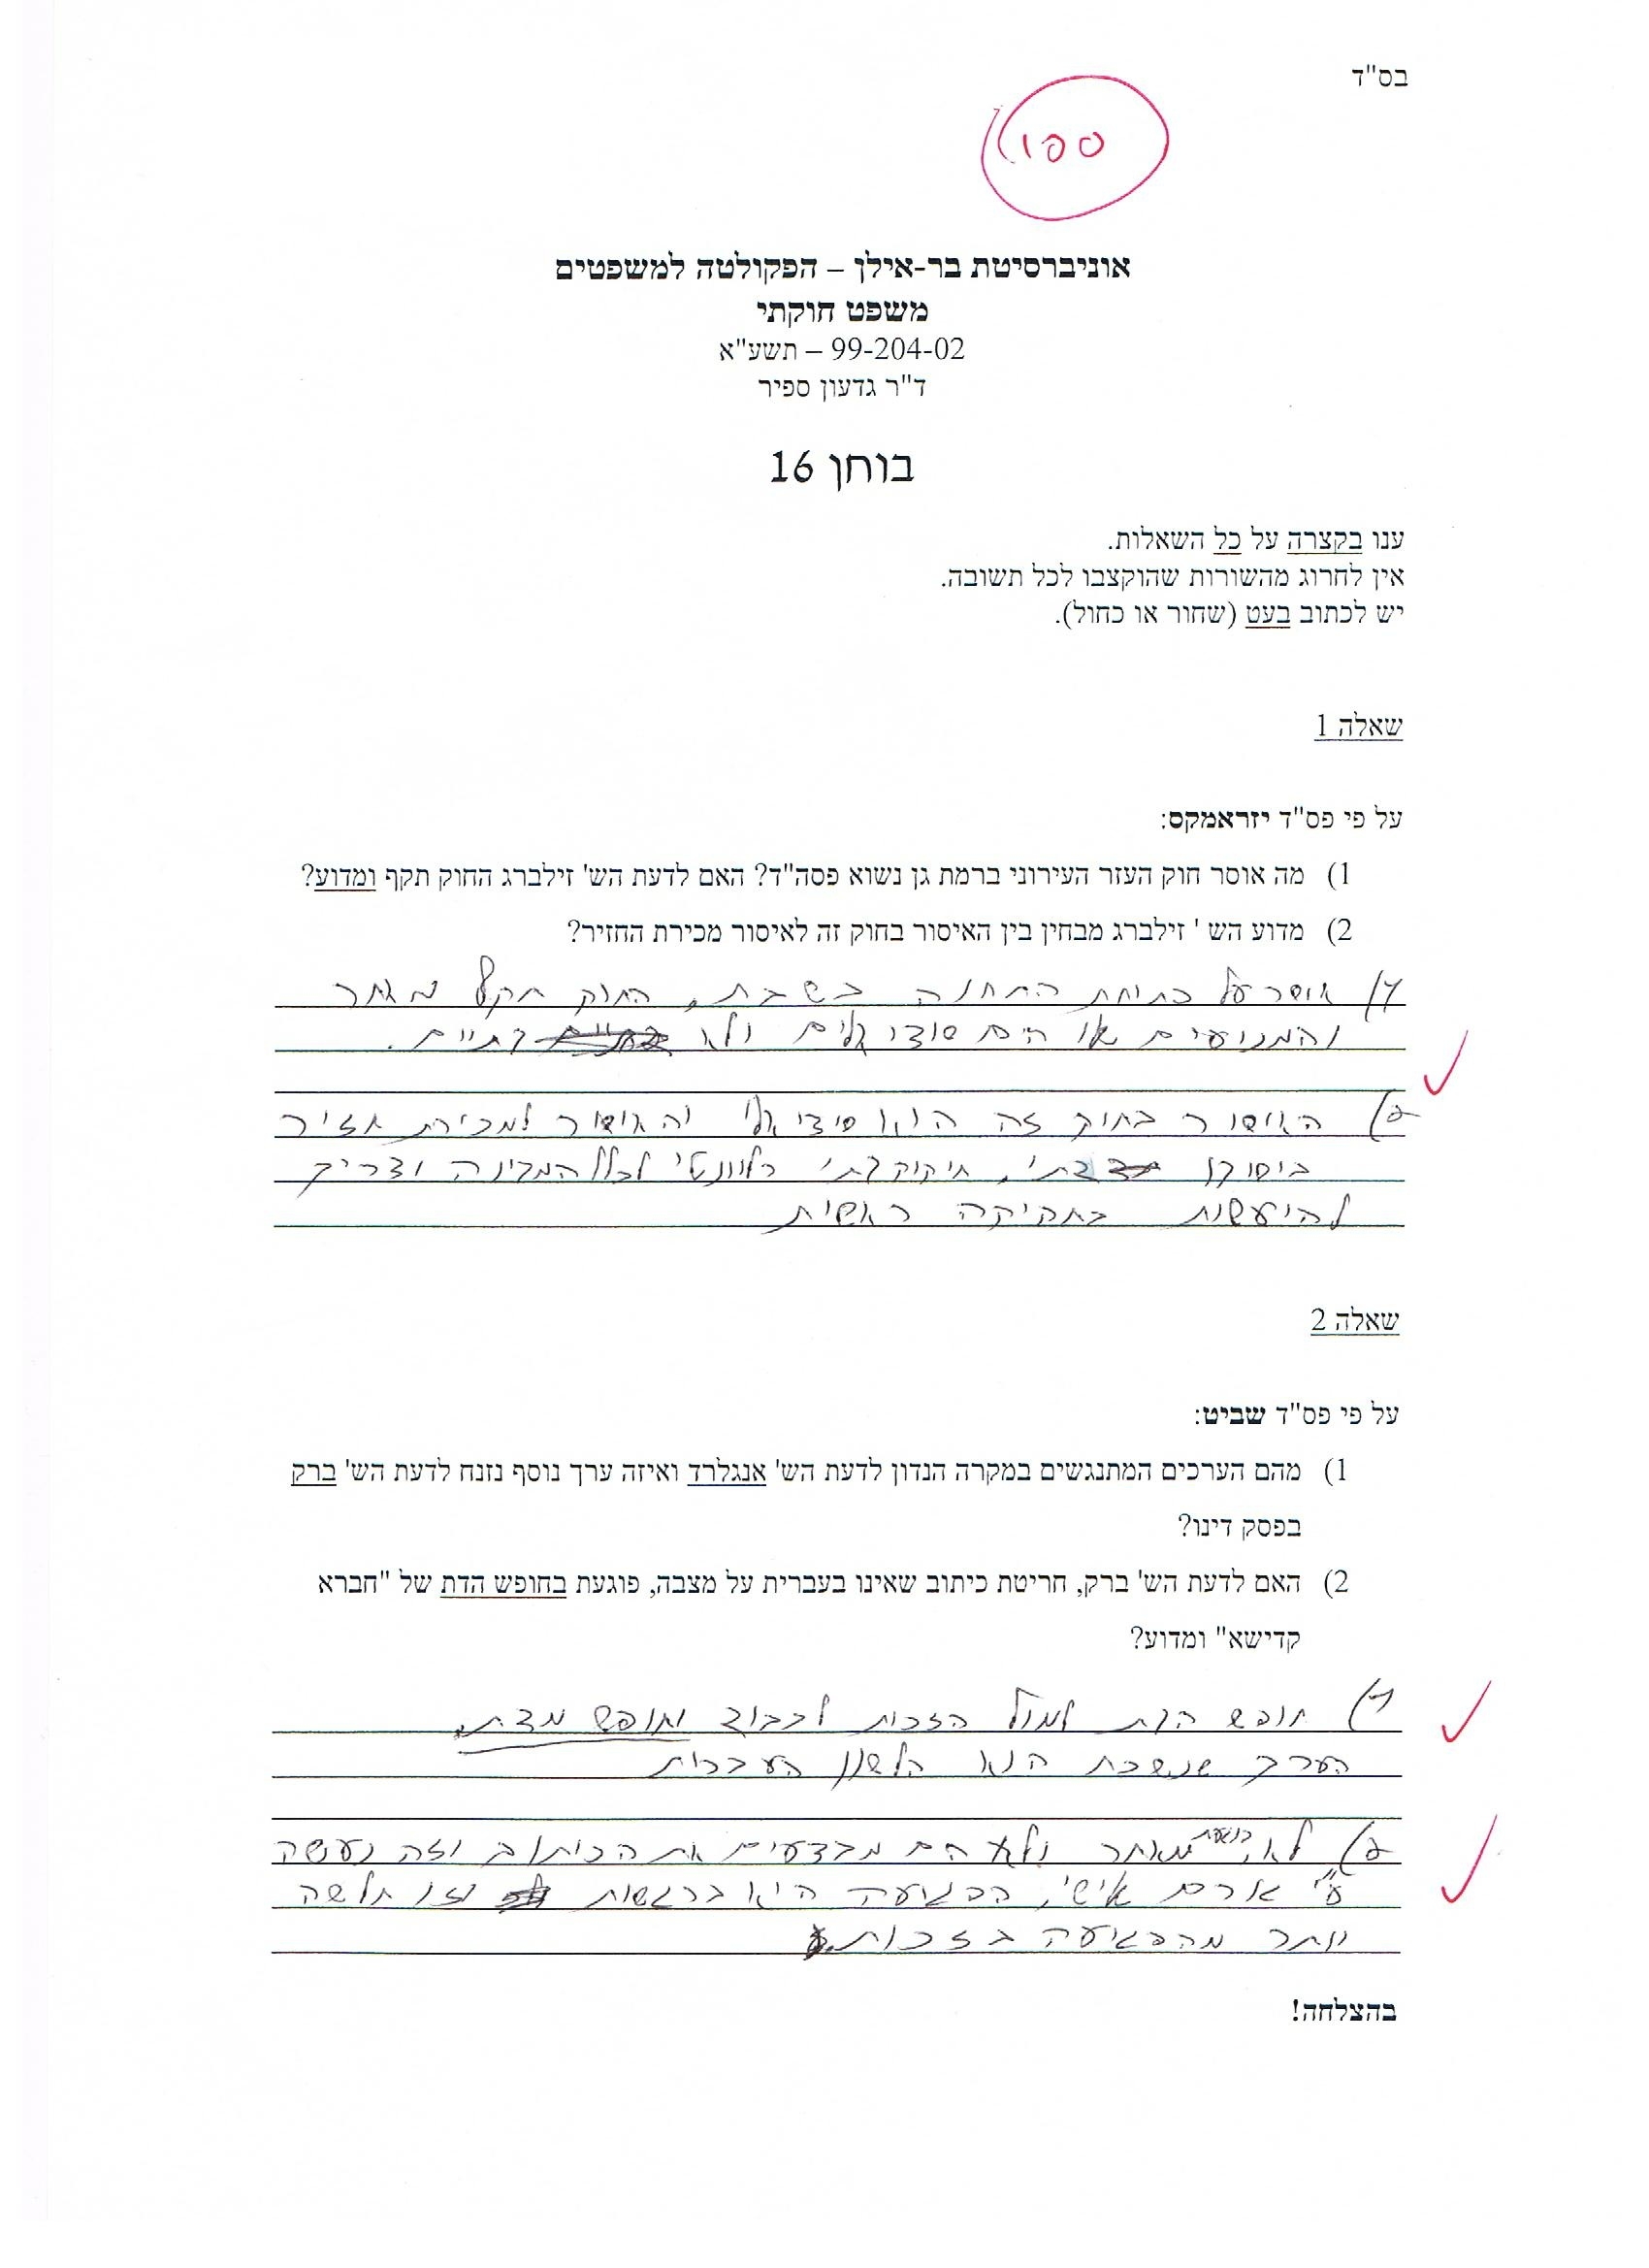 בס"ד
100
אוניברסיטת בר-אילן – הפקולטה למשפטים
משפט חוקתי
99-204-02 – תשע"א
ד"ר גדעון ספיר
בוחן 16
ענו בקצרה על כל השאלות.
אין לחרוג מהשורות שהוקצבו לכל תשובה.
יש לכתוב בעט (שחור או כחול).
שאלה 1
על פי פס"ד יזראמקס:
1) מה אוסר חוק העזר העירוני ברמת גן נשוא פסה"ד? האם לדעת הש' זילברג החוק תקף ומדוע?
2) מדוע הש' זילברג מבחין בין האיסור בחוק זה לאיסור מכירת החזיר?
1) אוסר על פתיחת התחנה בשבת. החוק תקף מאחר
והמניעים או הם סוציאלים ולא דתיים.
2) האיסור בחוק זה הוא סוציאלי והאיסור למכירת חזיר
ביסודו דתי, חיקוק דתי רלוונטי לכלל המדינה וצריך
להיעשות בחקיקה ראשית
שאלה 2
על פי פס"ד שביט:
1) מהם הערכים המתנגשים במקרה הנדון לדעת הש' אנגלרד ואיזה ערך נוסף נזנח לדעת הש' ברק
בפסק דינו?
2) האם לדעת הש' ברק, חריטת כיתוב שאינו בעברית על מצבה, פוגעת בחופש הדת של "חברא
קדישא" ומדוע?
1) חופש הדת למול הזכות לכבוד וחופש מדת.
הערך שנשכח הוא הלשון העברית
2) לא פוגעת מאחר ולא הם מבצעים את הכיתוב וזה נעשה
ע"י גורם אישי, הפגיעה היא ברגשות וזו חלשה
יותר מהפגיעה בזכות
בהצלחה!